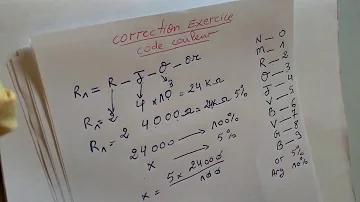 correction Exercice
code couleur
R1 = R — J — O — or
3
R1 = 2 4 × 10 = 24 KΩ
R1 = 2 4 000 Ω = 24K 5%
24 000 → 100%
x → 5%
x = 5 × 24000 / 100
N — 0
M — 1
R — 2
O — 3
J — 4
V — 5
B — 6
V — 7
G — 8
B — 9
or 5%
Arg 10%